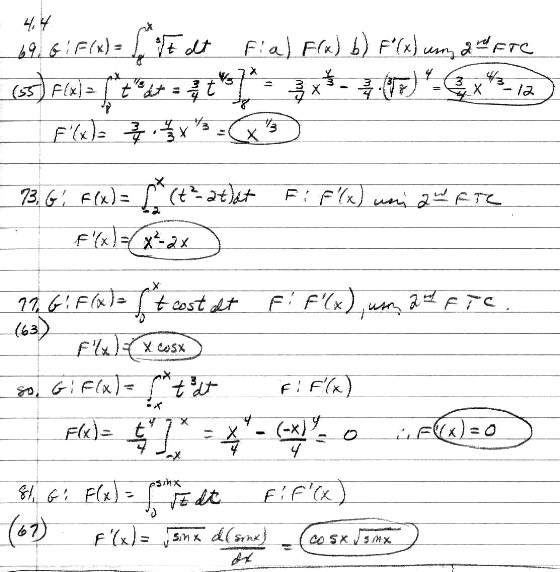 4.4
69. G: F(x) = ∫₈ˣ ∛t dt   F: a) F(x) b) F'(x) using 2nd FTC
(55) F(x) = ∫₈ˣ t^(1/3) dt = 3/4 t^(4/3) ]₈ˣ = 3/4 x^(4/3) - 3/4 · (∛8)^4 = 3/4 x^(4/3) - 12
F'(x) = 3/4 · 4/3 x^(1/3) = x^(1/3)
73. G: F(x) = ∫₋₂ˣ (t² - 2t) dt   F: F'(x) using 2nd FTC
F'(x) = x² - 2x
77. G: F(x) = ∫₀ˣ t cos t dt   F: F'(x), using 2nd FTC.
(63)
F'(x) = x cos x
80. G: F(x) = ∫₋ₓˣ t³ dt   F: F'(x)
F(x) = t⁴/4 ]₋ₓˣ = x⁴/4 - (-x)⁴/4 = 0   ∴ F'(x) = 0
81. G: F(x) = ∫₀^(sin x) √t dt   F: F'(x)
(67) F'(x) = √(sin x) d(sin x)/dx = cos x √(sin x)